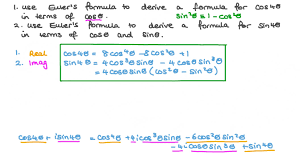 1. use Euler's formula to derive a formula for cos4θ
in terms of cosθ. sin²θ ≡ 1 - cos²θ
2. use Euler's formula to derive a formula for sin4θ
in terms of cosθ and sinθ.
1. Real cos4θ = 8cos⁴θ - 8cos²θ + 1
2. Imag sin4θ = 4cos³θsinθ - 4cosθsin³θ
= 4cosθsinθ (cos²θ - sin²θ)
cos4θ + isin4θ = cos⁴θ + 4icos³θsinθ - 6cos²θsin²θ
- 4icosθsin³θ + sin⁴θ